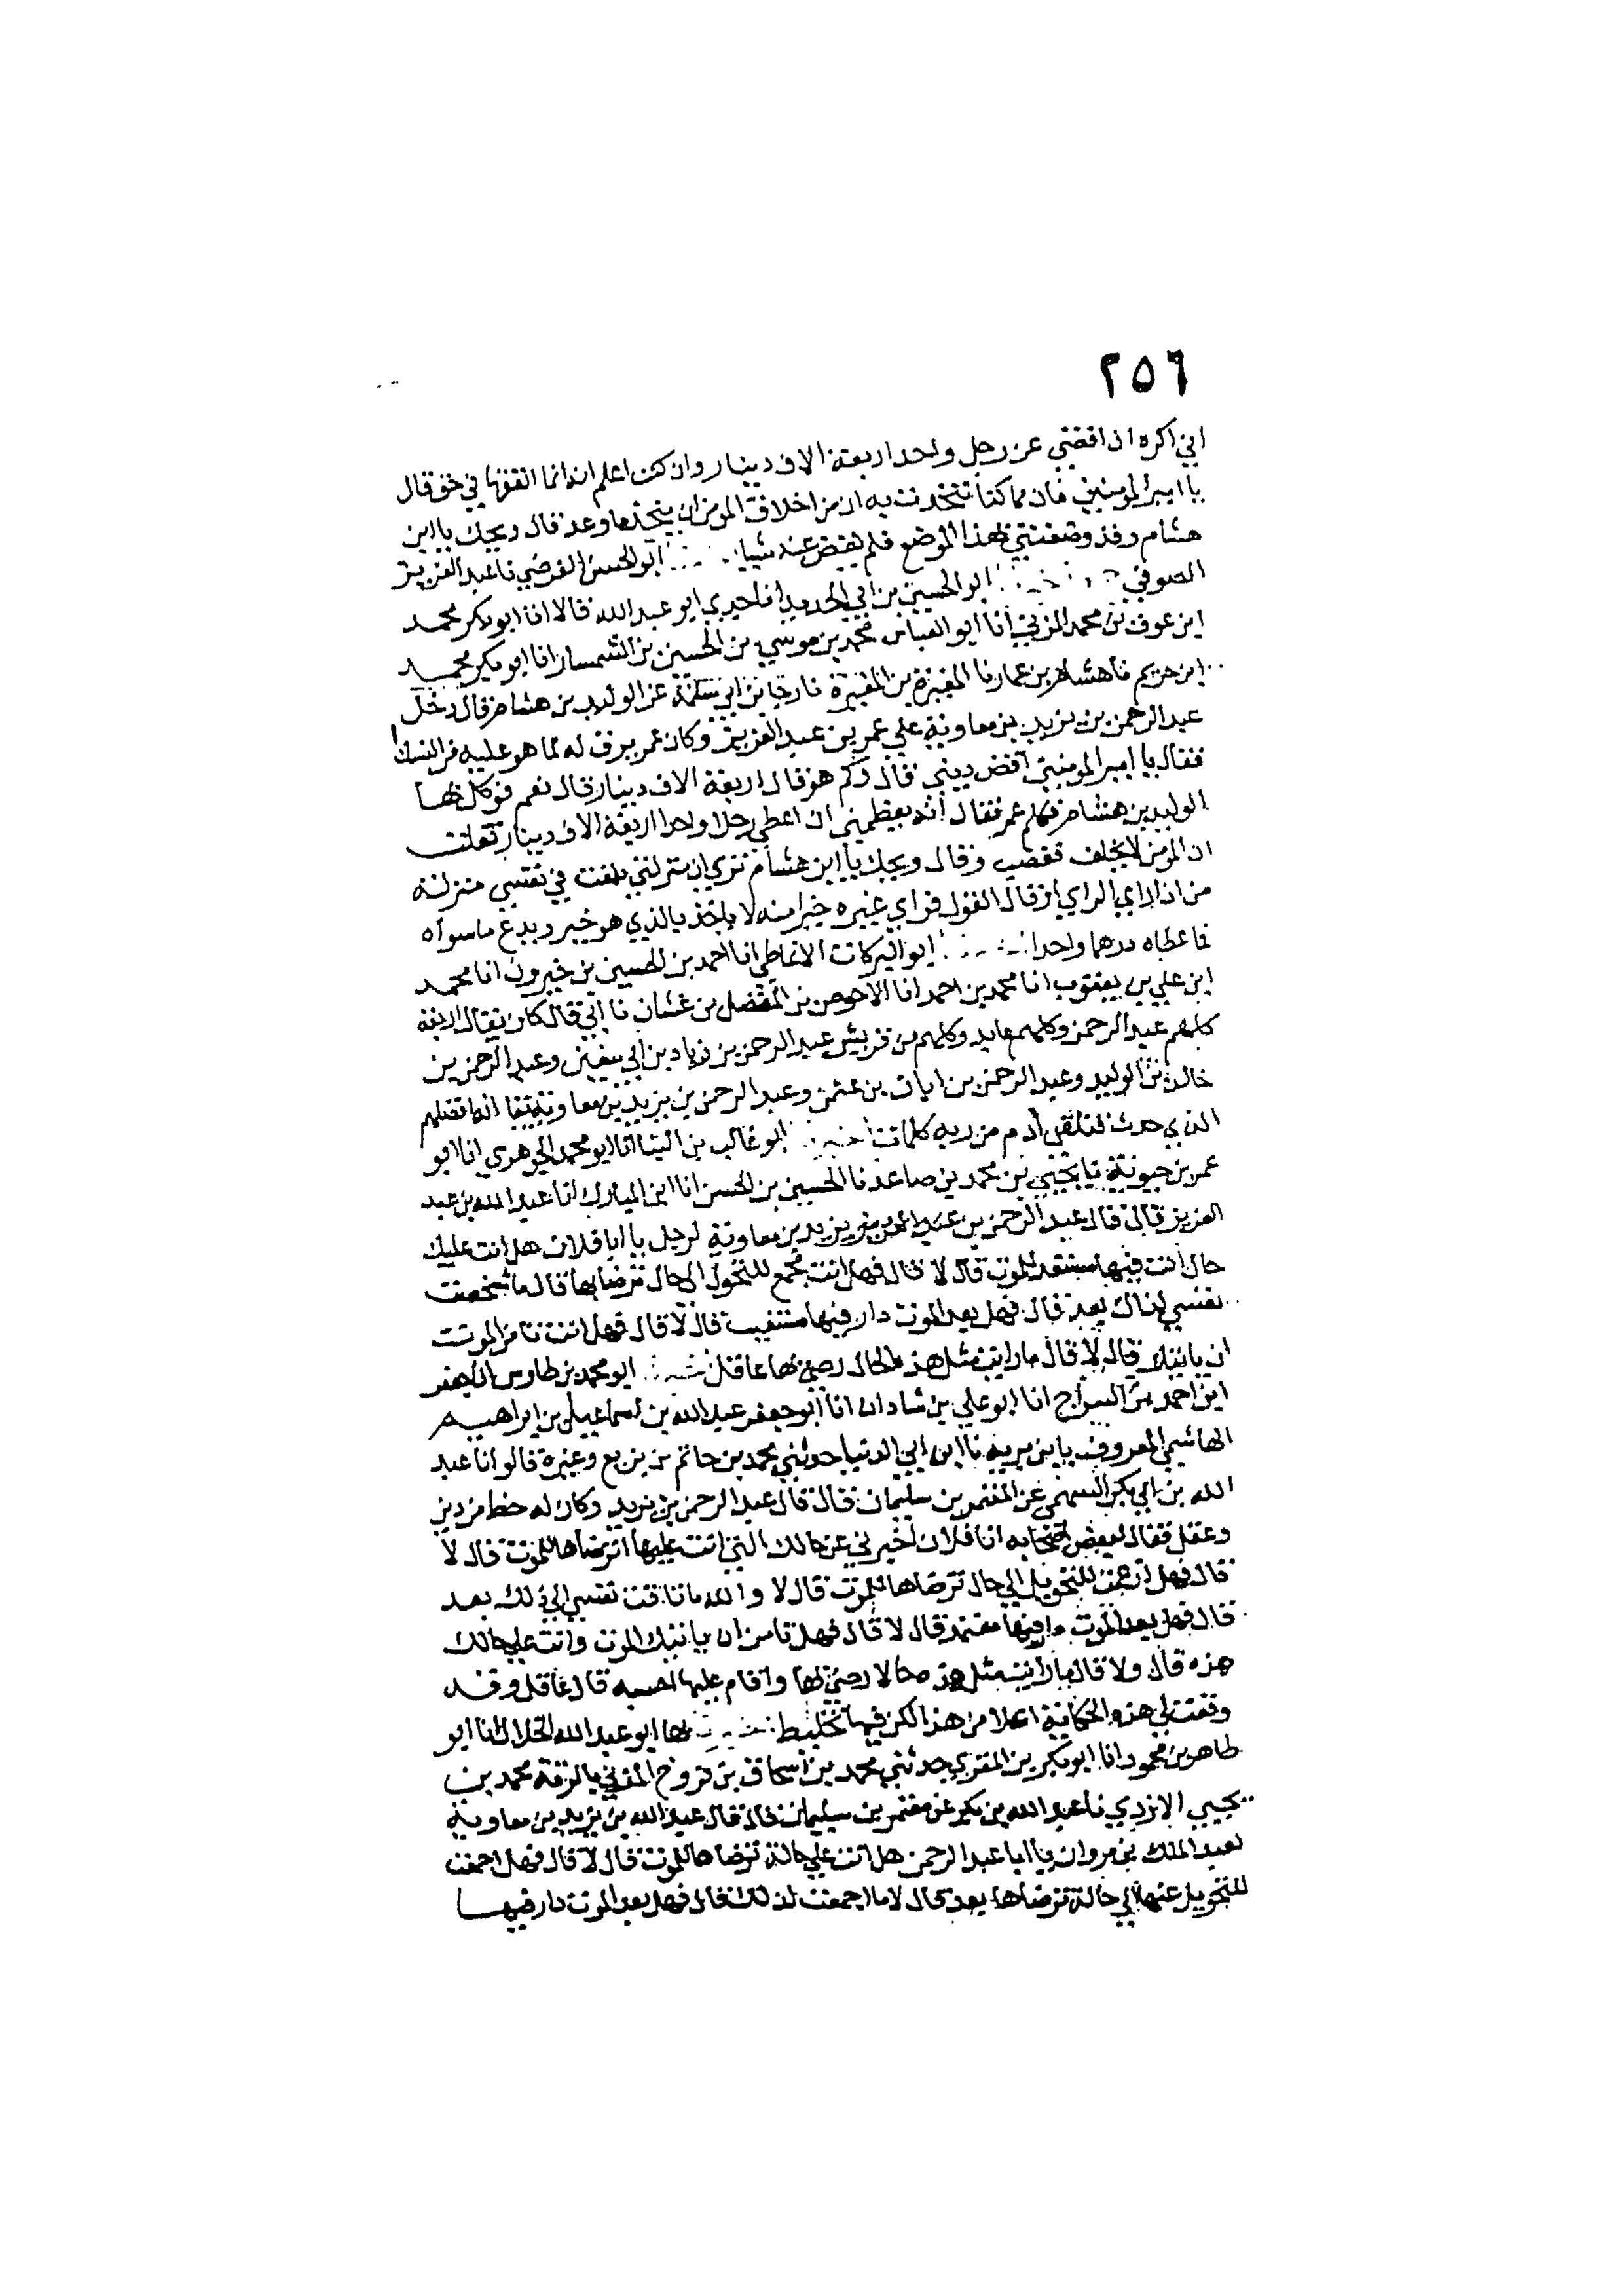 ٢٥٦
اني اكره ان اقضي عن رجل واحد اربعة الاف دينار وان كنت اعلم انه انما انفقها في حق قال
يا امير المومنين فان مما كنا نتحدث به ان من اخلاق المومن ان ينجز ما وعد قال ويحك يا ابن
هشام وقد وضعتني بهذا الموضع فلم يقض عنه شيا ابو الحسن الفرضي نا عبد العزيز
الصوفي ابو الحسين بن ابي الحديد انا جدي ابو عبد الله قالا انا ابو بكر محمد
ابن عوف بن محمد المزني انا ابو العباس محمد بن موسي بن الحسين بن السمسار انا ابو بكر محمد
ابن خريم نا هشام بن عمار نا المغيرة بن المغيرة نا رجا بن ابي سلمة عن الوليد بن هشام قال دخل
عبد الرحمن بن يزيد بن معاوية علي عمر بن عبد العزيز وكان عمر يرق له لما هو عليه من النسك
فقال يا امير المومنين اقض ديني قال وكم هو قال اربعة الاف دينار قال نعم فوكل بها
الوليد بن هشام فكلم عمر فقال انه يعظمني ان اعطي رجلا واحدا اربعة الاف دينار فقلت
ان المومن لا يخلف فغضب وقال ويحك يا ابن هشام تري ان منزلتي بلغت في نفسي منزلة
من اذا راي الراي او قال القول فراي غيره خيرا منه لا ياخذ بالذي هو خير ويدع ما سواه
فما اعطاه درهما واحدا ابو البركات الانماطي انا احمد بن الحسين بن خيرون انا محمد
ابن علي بن يعقوب انا محمد بن احمد انا الاحوص بن المفضل بن غسان نا ابي قال كان يقال اربعة
كلهم عبد الرحمن وكلهم عابد وكلهم من قريش عبد الرحمن بن زياد بن ابي سفين وعبد الرحمن بن
خالد بن الوليد وعبد الرحمن بن ابان بن عثمن وعبد الرحمن بن يزيد بن معاوية انه افضلهم
الذي حدث فتلقي آدم من ربه كلمات ابو غالب بن البنا انا ابو محمد الجوهري انا ابو
عمر بن حيوية نا يحيي بن محمد بن صاعد نا الحسين بن الحسن انا ابن المبارك انا عبد الله بن عبد
العزيز قال قال عبد الرحمن بن يزيد بن معاوية لرجل يا ابا فلان هل انت عليك
حال انت فيها مستعد للموت قال لا قال فهل انت مجمع للتحول الي حال ترضا بها قال ما شخصت
نفسي لذاك بعد قال فهل بعد الموت دار فيها مستعتب قال لا قال فهل انت تامن الموت
ان ياتيك قال لا قال ما رايت مثل هذه الحال رضي بها عاقل ابو محمد بن طاوس انا جعفر
ابن احمد بن السراج انا ابو علي بن شاذان انا ابو جعفر عبد الله بن اسماعيل بن ابراهيم
الهاشمي المعروف بابن بريه نا ابن ابي الدنيا حدثني محمد بن حاتم بن بزيع وغيره قالو انا عبد
الله بن ابي بكر السهمي عن المعتمر بن سليمان قال قال عبد الرحمن بن يزيد وكان له حظ من دين
وعقل فقال لبعض اصحابه انا فلان اخبرني عن حالك التي انت عليها اترضاها للموت قال لا
قال فهل ازمعت للتحويل الي حال ترضاها للموت قال لا والله ما تاقت نفسي الي ذلك بعد
قال فهل بعد الموت دار فيها معتمد قال لا قال فهل تامن ان ياتيك الموت وانت علي حالك
هذه قال ولا قال ما رايت مثل هذه حالا رضي بها واقام عليها احسبه قال عاقل وقد
وقعت لي هذه الحكاية اعلا من هذا لكن فيها تخليط بها ابو عبد الله الخلال انا ابو
طاهر بن محمود انا ابو بكر بن المقري حدثني محمد بن اسحاق بن فروخ بالرقة محمد بن
يحيي الازدي نا عبد الله بن بكر عن معتمر بن سليمان قال قال عبد الله بن يزيد بن معاوية
لعبد الملك بن مروان يا ابا عبد الرحمن هل انت علي حالة ترضاها للموت قال لا قال فهل اجمعت
للتحويل عنها الي حالة ترضاها بعد قال لا ما اجمعت لذلك قال فهل بعد الموت دار فيها